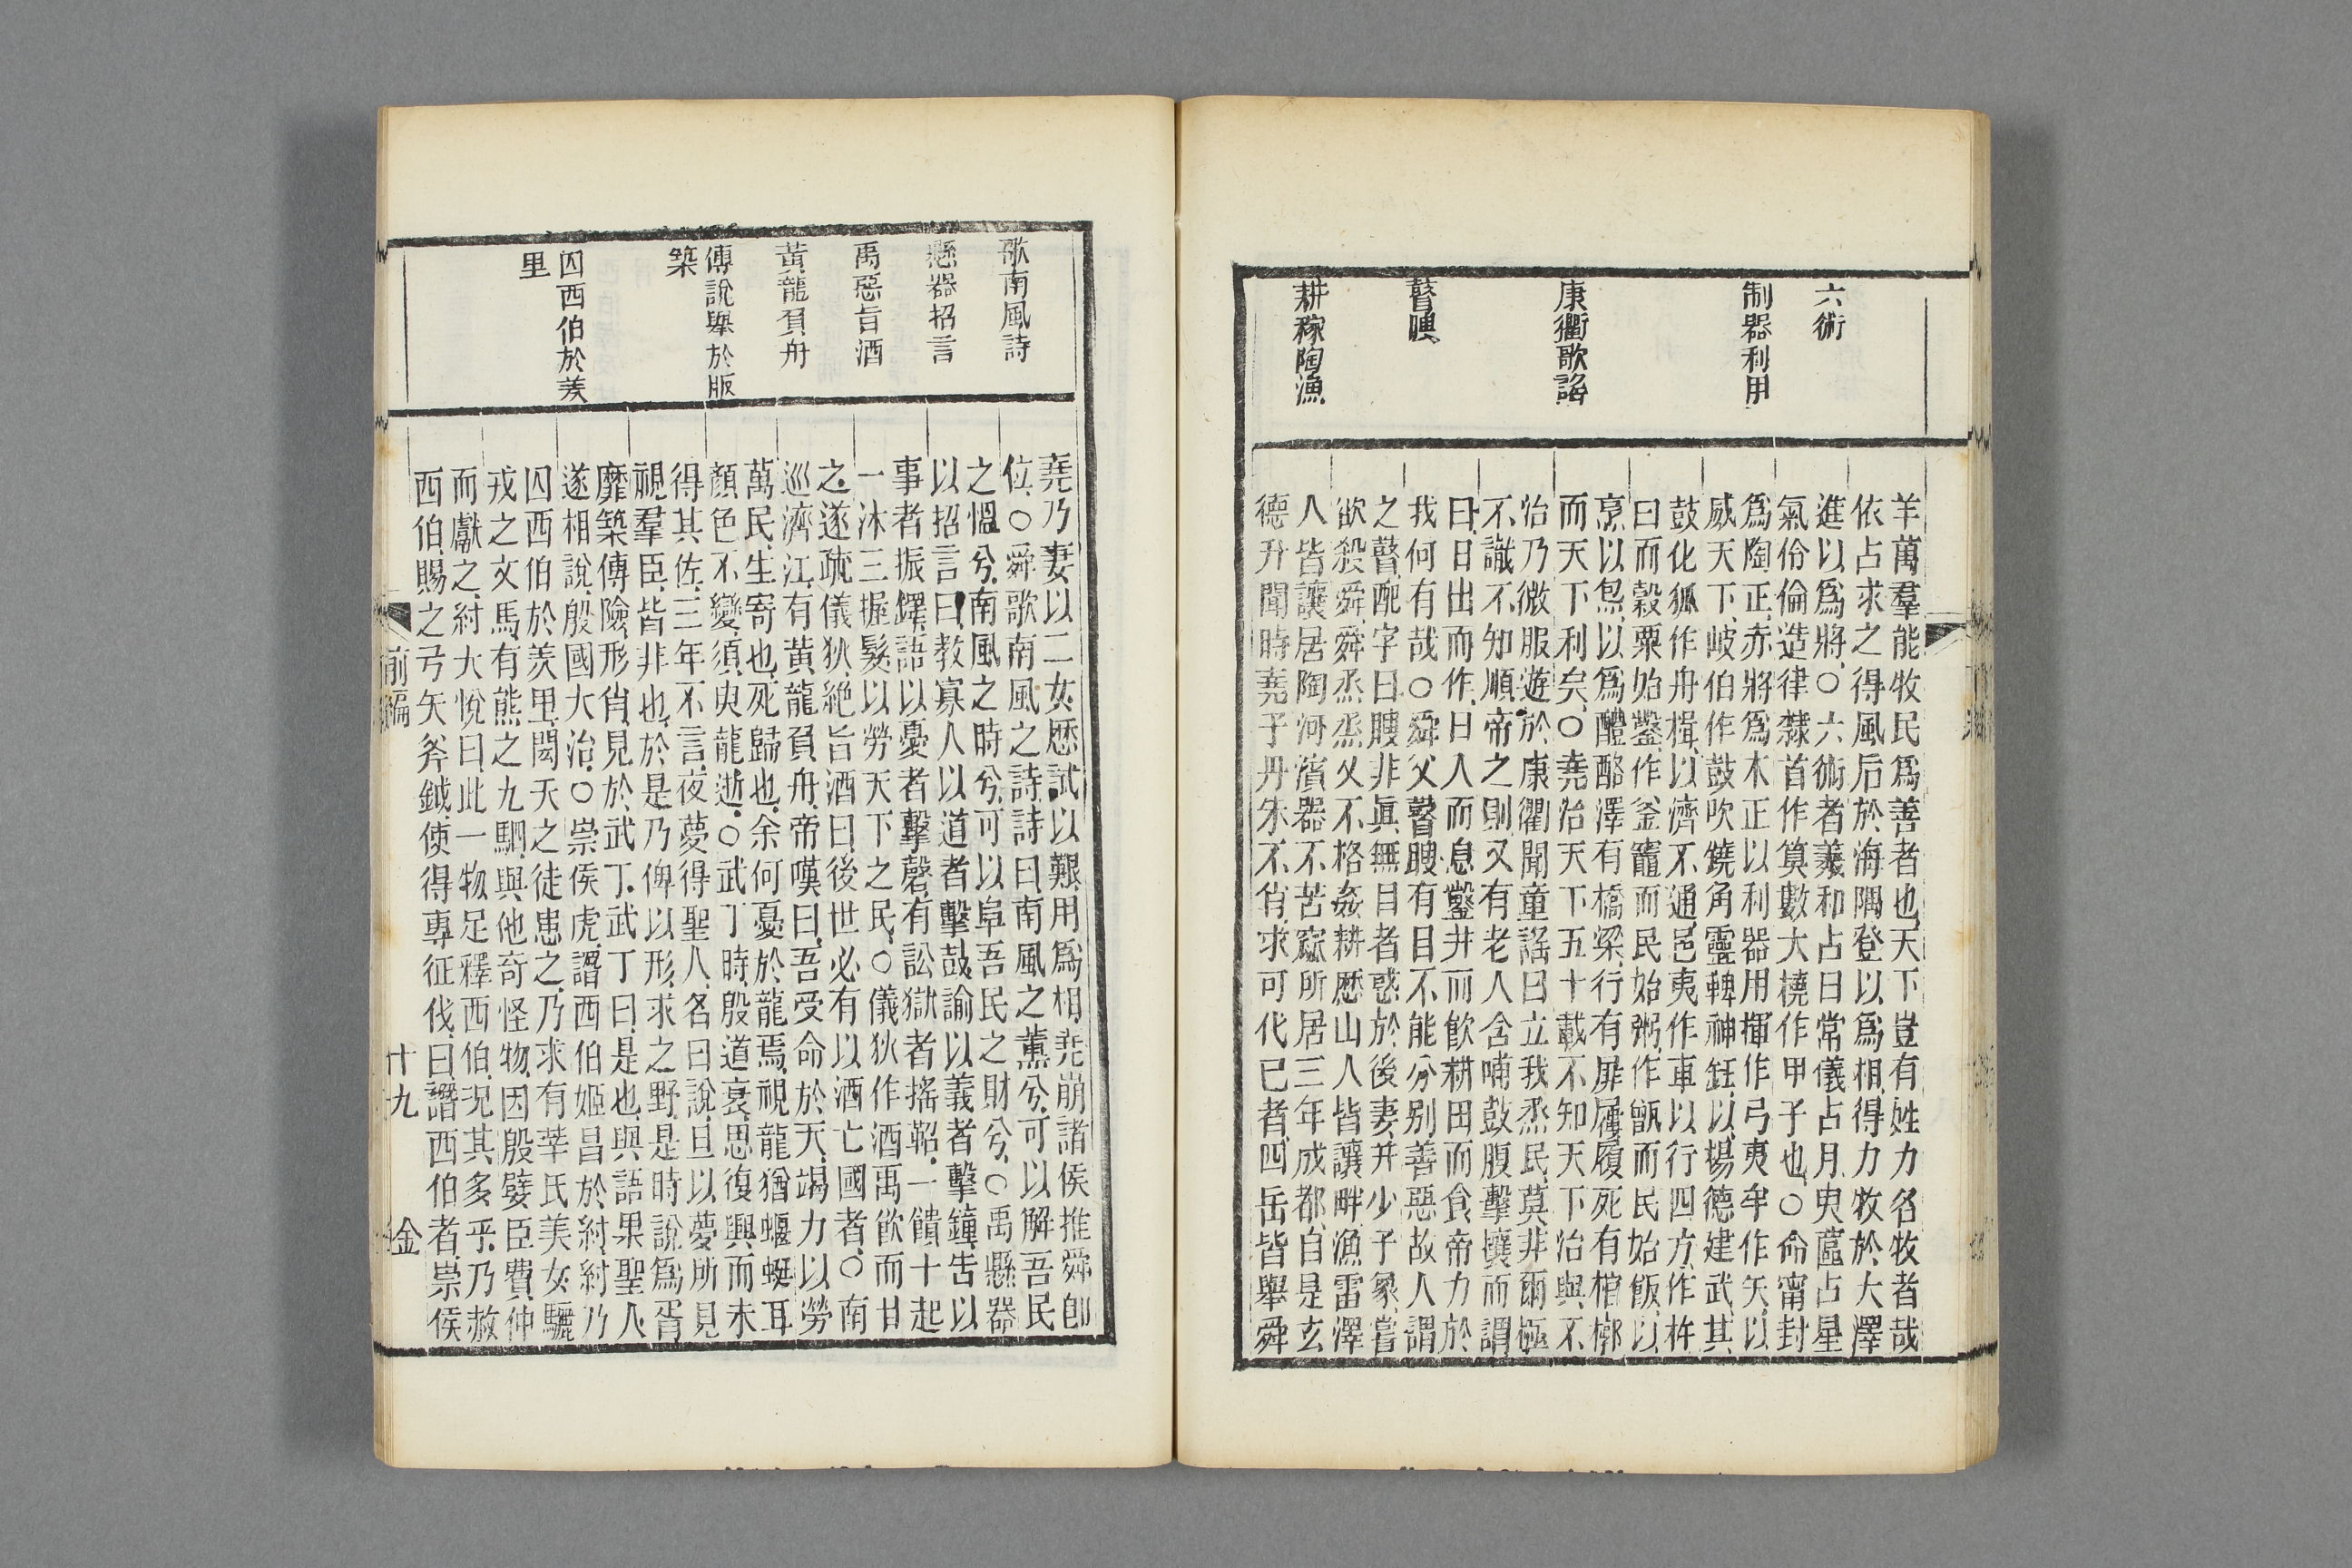 六術
制器利用
康衢歌謠
瞽瞍
耕稼陶漁
羊萬羣能牧民爲善者也天下豈有姓力名牧者哉
依占求之得風后於海隅登以爲相得力牧於大澤
進以爲將○六術者羲和占日常儀占月臾蓲占星
氣伶倫造律隸首作算數大橈作甲子也○命甯封
爲陶正赤將爲木正以利器用揮作弓夷牟作矢以
威天下岐伯作鼓吹鐃角靈鞞神鉦以揚德建武其
鼓化狐作舟楫以濟不通邑夷作車以行四方作杵
曰而穀粟始鑿作釜竈而民始粥作甑而民始飯以
烹以炰以爲醴酪澤有橋梁行有屝屨履死有棺槨
而天下利矣○堯治天下五十載不知天下治與不
治乃微服遊於康衢聞童謠曰立我烝民莫非爾極
不識不知順帝之則又有老人含哺鼓腹擊壤而謂
曰日出而作日入而息鑿井而飮耕田而食帝力於
我何有哉○舜父瞽瞍有目不能分別善惡故人謂
之瞽配字曰瞍非眞無目者惑於後妻并少子象嘗
欲殺舜舜烝烝乂不格姦耕歷山人皆讓畔漁雷澤
人皆讓居陶河濱器不苦窳所居三年成都自是玄
德升聞時堯子丹朱不肖求可代已者四岳皆舉舜
歌南風詩
懸器招言
禹惡旨酒
黃龍負舟
傅說舉於版
築
囚西西伯於羑
里
堯乃妻以二女歷試以艱用爲相堯崩諸侯推舜卽
位○舜歌南風之詩詩曰南風之薰兮可以解吾民
之慍兮南風之時兮可以阜吾民之財兮○禹懸器
以招言曰教寡人以道者擊鼓諭以義者擊鐘告以
事者振鐸語以憂者擊磬有訟獄者搖鞀一饋十起
一沐三握髮以勞天下之民○儀狄作酒禹飮而甘
之遂疏儀狄絕旨酒曰後世必有以酒亡國者○南
巡濟江有黃龍負舟帝嘆曰吾受命於天竭力以勞
萬民生寄也死歸也余何憂於龍焉視龍猶蝘蜓耳
顏色不變須臾龍逝○武丁時殷道衰思復興而未
得其佐三年不言夜夢得聖人名曰說旦以夢所見
視羣臣皆非也於是乃俾以形求之野是時說爲胥
靡築傅險形肖見於武丁武丁曰是也與語果聖人
遂相說殷國大治○崇侯虎譖西伯姬昌於紂紂乃
囚西伯於羑里閎夭之徒患之乃求有莘氏美女驪
戎之文馬有熊之九駟與他奇怪物因殷嬖臣費仲
而獻之紂大悅曰此一物足釋西伯況其多乎乃赦
西伯賜之弓矢斧鉞使得專征伐曰譖西伯者崇侯
前編
十九
金